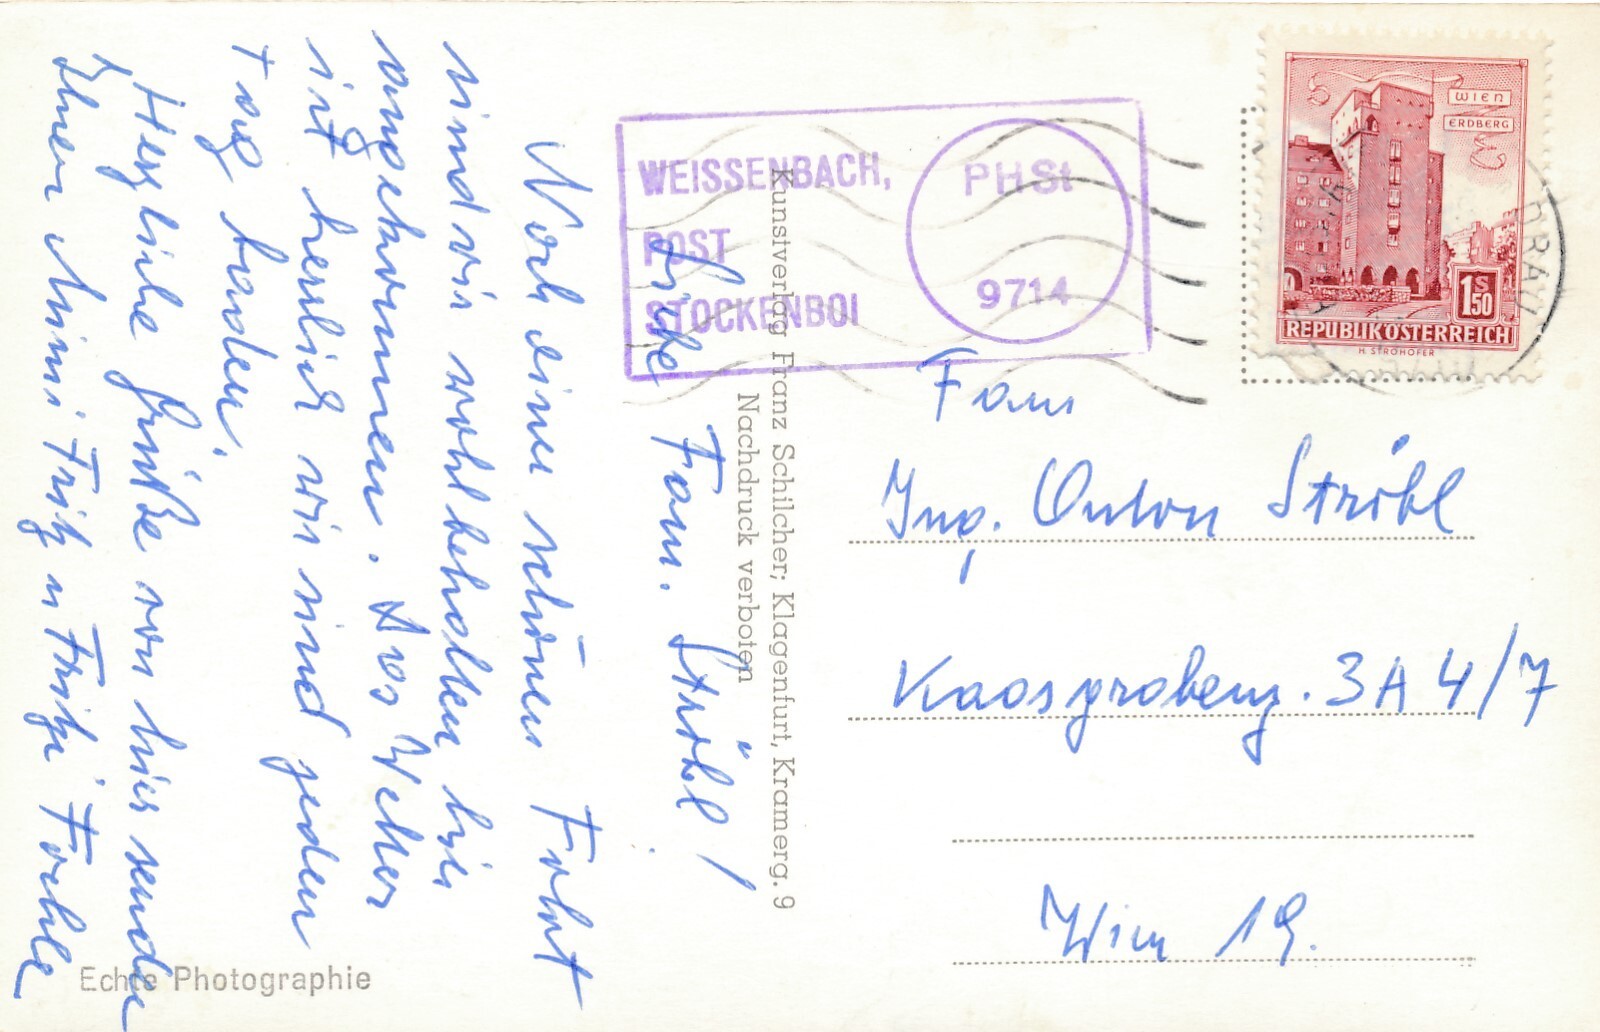 Liebe Fam. Ströbl!
Nach einer schönen Fahrt
sind wir wohlbehalten hier
angekommen. Das Wetter
ist herrlich wir sind jeden
Tag baden.
Herzliche Grüße von hier sendet
Ihnen Mimi Fritz u Fritzi
WEISSENBACH,
POST
STOCKENBOI
PHSt
9714
WIEN
ERDBERG
1 S 50
REPUBLIK ÖSTERREICH
H. STROHOFER
DRAU
Kunstverlag Franz Schilcher; Klagenfurt, Kramerg. 9
Nachdruck verboten
Fam
Ing. Anton Ströbl
Kaasgrabeng. 3A 4/7
Wien 19.
Echte Photographie